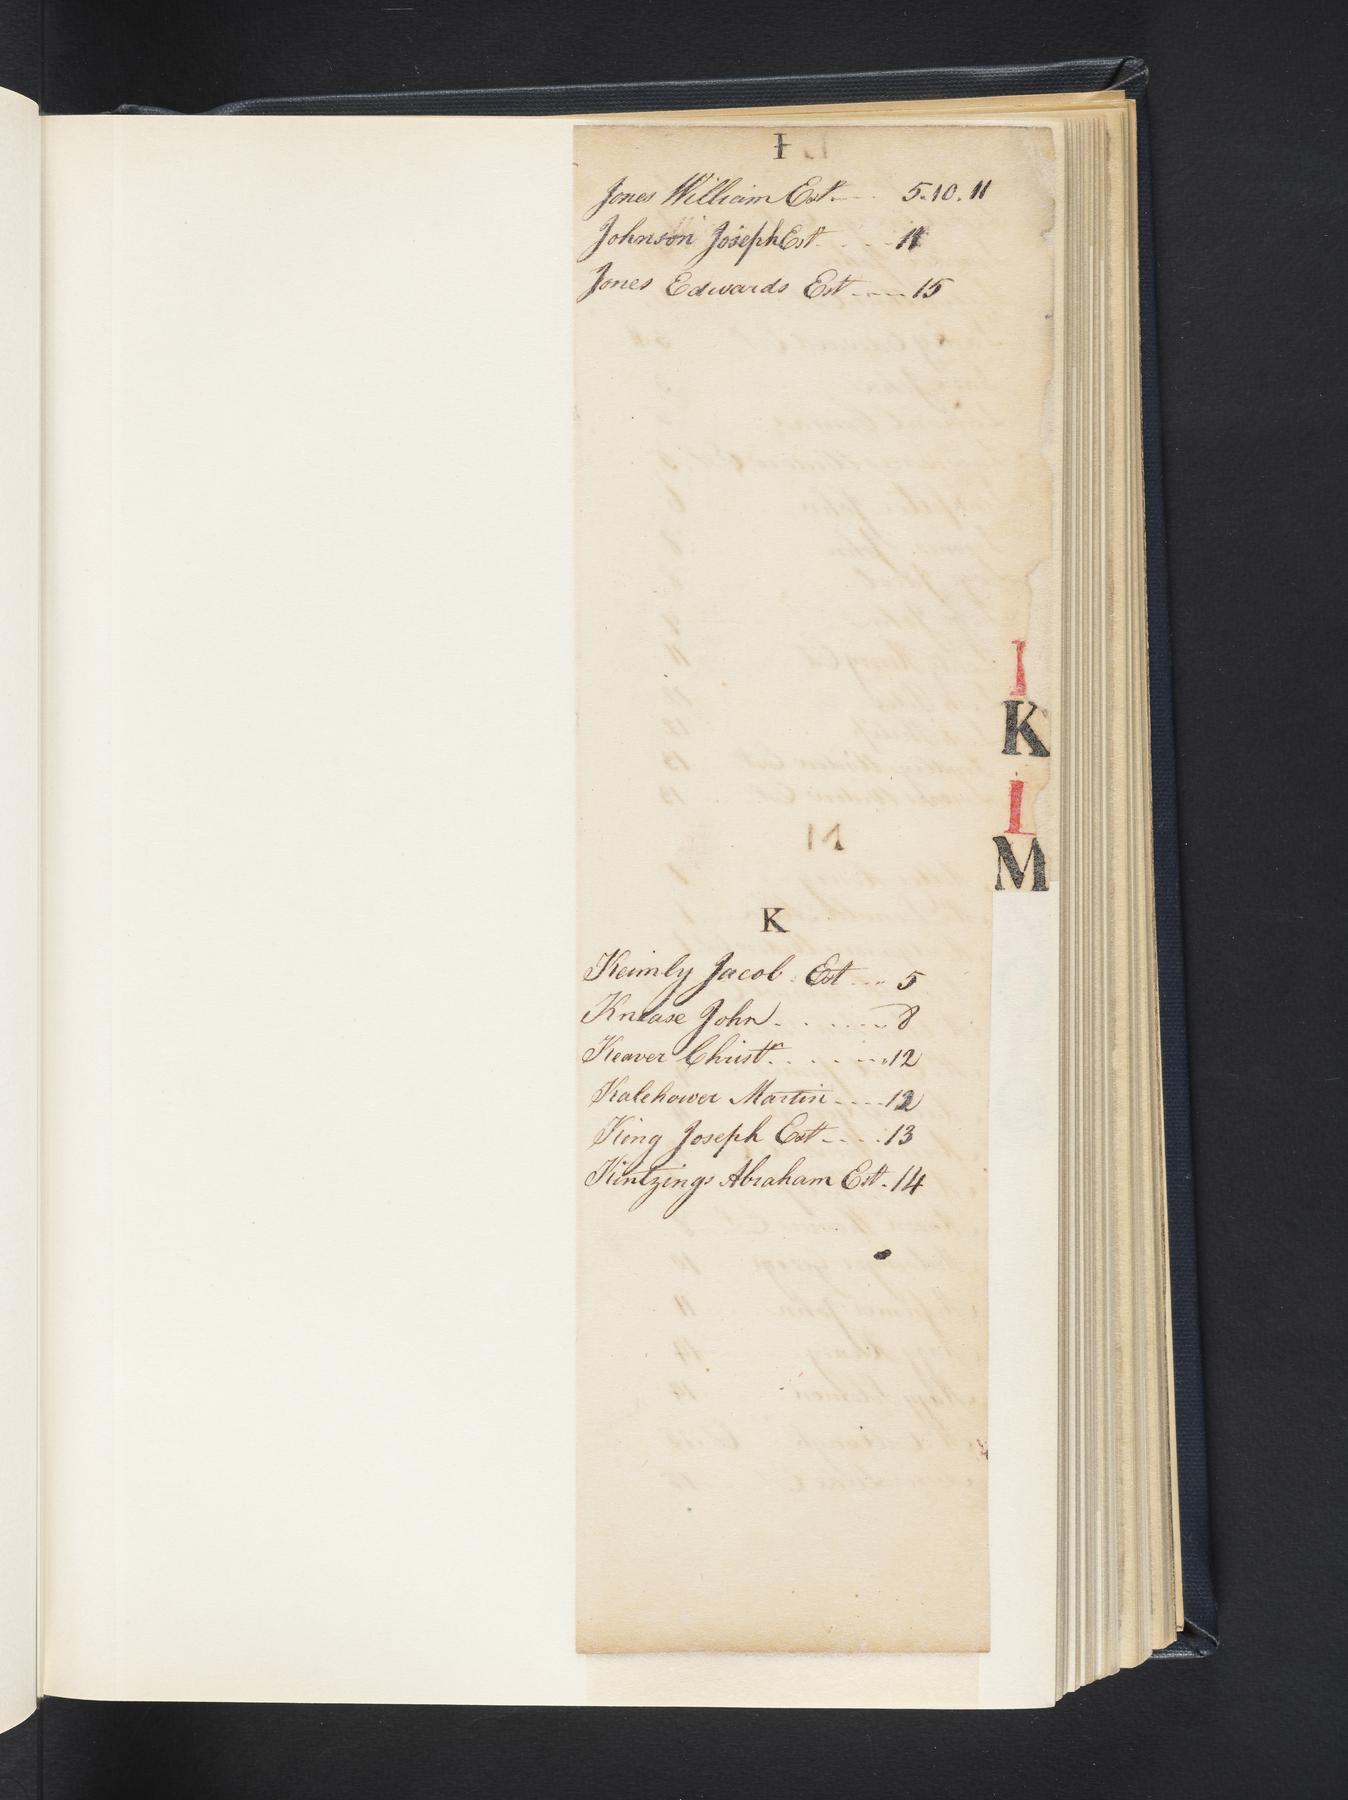 I
Jones William Est. 5. 10. 11
Johnson Joseph Est. 11
Jones Edwards Est 15
I
K
L
M
K
Keimly Jacob Est 5
Knease John 8
Keaver Christr. 12
Kalehower Martin 12
King Joseph Est 13
Kintzings Abraham Est. 14